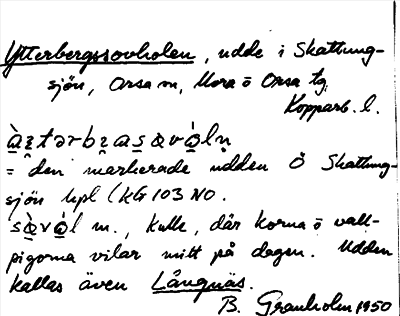 Ytterbergssovholen, udde i Skattung-
sjön, Orsa sn, Mora o Orsa tg
Kopparb. l.
= den markerade udden Ö Skattung-
sjön hpl (kG 103 NO.
m., kulle, där korna o vall-
pigorna vilar mitt på dagen. Udden
kallas även Långnäs.
B. Granholm 1950